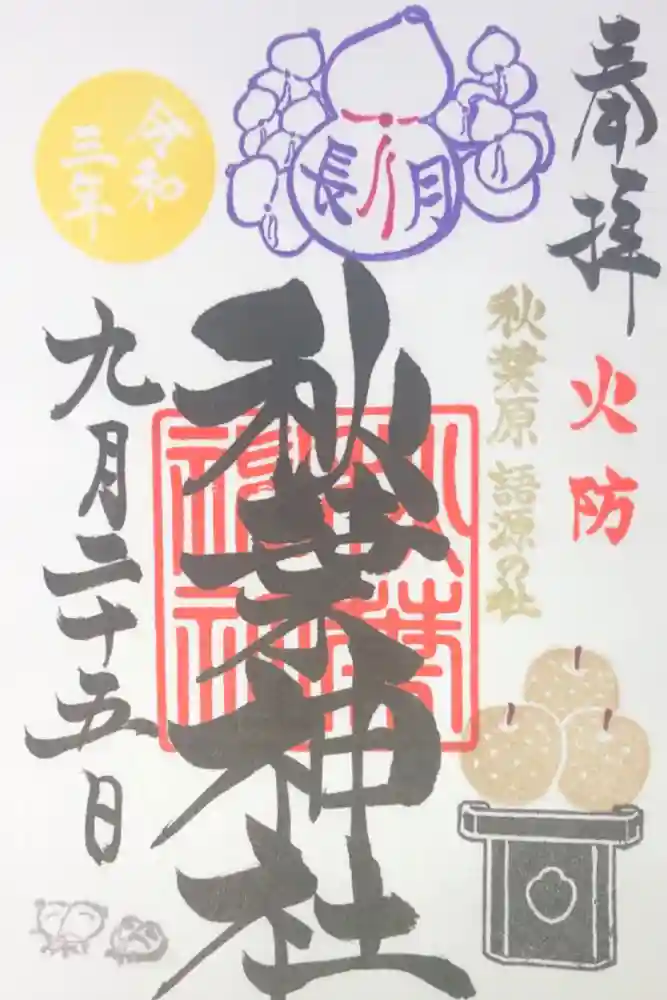 奉拝
火防
秋葉原 語源の社
長月
秋葉神社
秋葉神社
令和
三年
九月二十五日